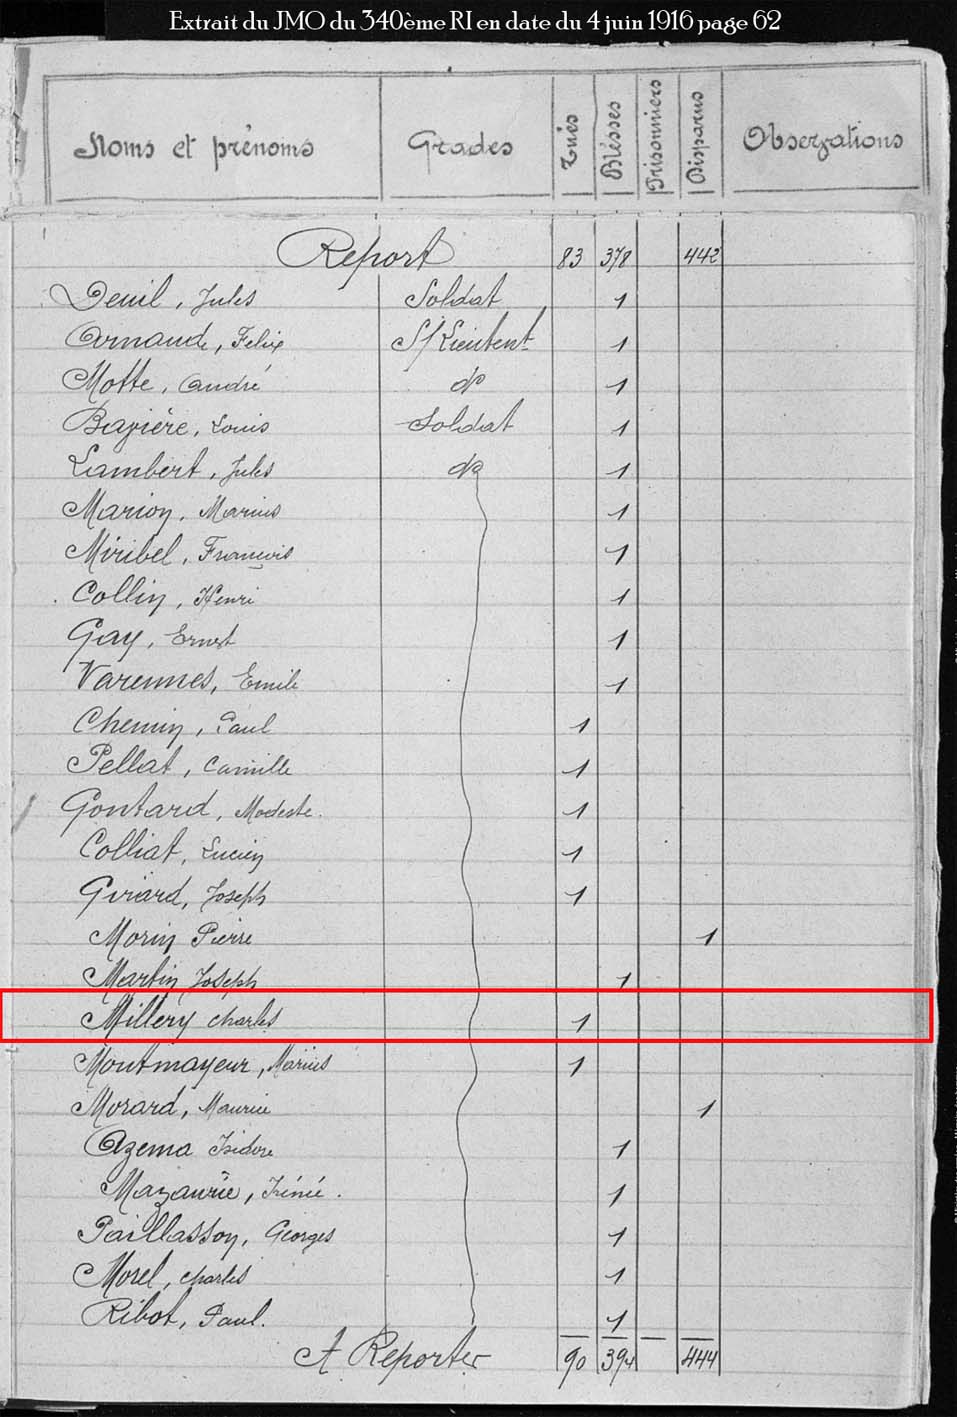 Extrait du JMO du 340ème RI en date du 4 juin 1916 page 62
Noms et prénoms Grades Tués Bléssés Prisonniers Disparus Observations
Report 83 378 442
Deuil, Jules Soldat 1
Arnaud, Felix S/Lieutent 1
Motte, André do 1
Bayière, Louis Soldat 1
Lambert, Jules do 1
Marion, Marius 1
Miribel, François 1
Collin, Henri 1
Gay, Ernest 1
Varennes, Emile 1
Chemin, Paul 1
Pellat, Camille 1
Gontard, Modeste. 1
Colliat, Lucien 1
Girard, Joseph 1
Morin Pierre 1
Martin Joseph 1
Millery Charles 1
Montmayeur, Marius 1
Morard, Maurice 1
Azema Isidore 1
Mazaurie, Irénée. 1
Paillasson, Georges 1
Morel, Charles 1
Ribot, Paul. 1
A Reporter 90 394 444